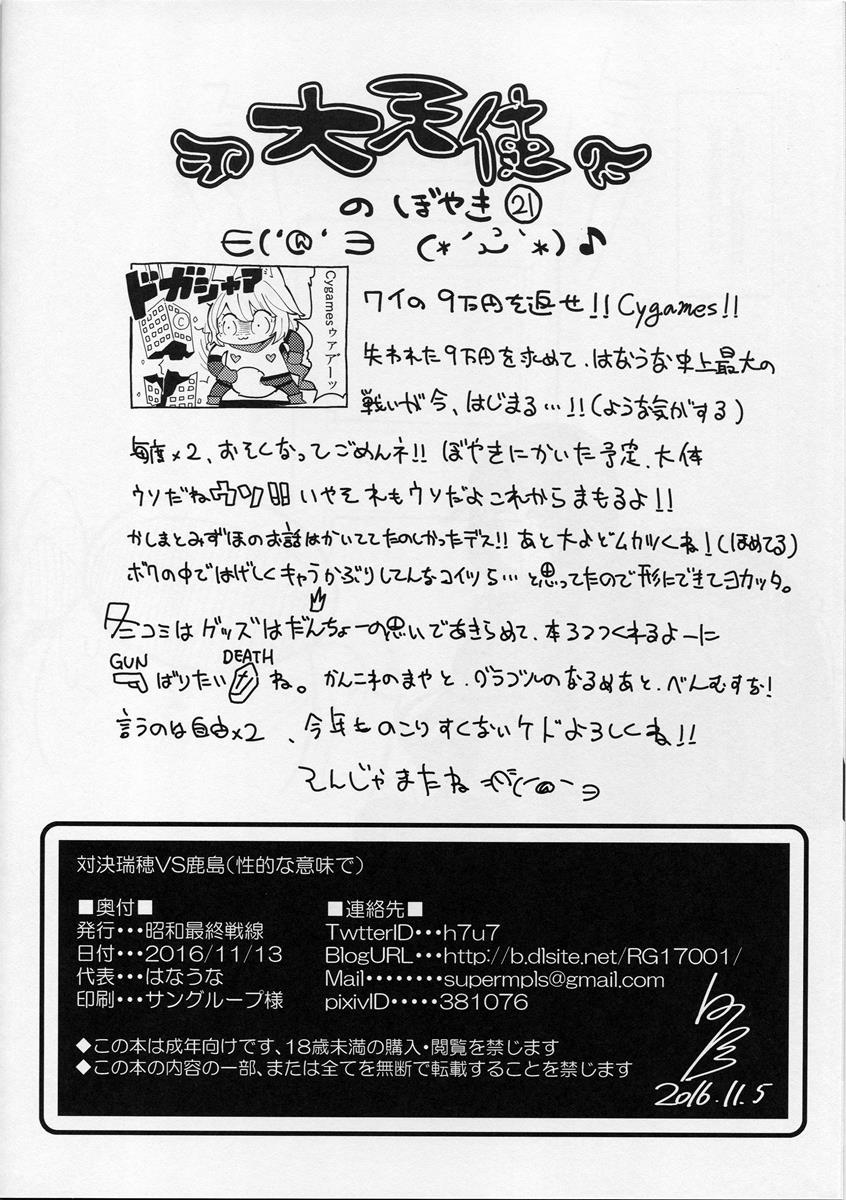 大天使
のぼやき㉑
∈('@'∋ (*´ω`*)♪
ドガシャァ
Cygamesゥァア゛ーッ
ワイの9万円を返せ!!Cygames!!
失われた9万円を求めて、はなうな史上最大の
戦いが今、はじまる…!!(ような気がする)
毎度×2、おそくなってごめんネ!!ぼやきにかいた予定、大体
ウソだねウソ!!いやそれもウソだよこれからまもるよ!!
かしまとみずほのお話はかいててたのしかったデス!!あと大よどムカツくね!(ほめてる)
ボクの中ではげしくキャラかぶりしてんなコイツら…と思ってたので形にできてヨカッタ。
冬コミはグッズはだんちょーの思いであきらめて、本3つつくれるよーに
GUN DEATH
ばりたい ね。かんこれのまやと、グラブルのなるめあと、べんむすな!
言うのは自由×2、今年ものこりすくないケドよろしくね!!
そんじゃまたね
対決瑞穂VS鹿島(性的な意味で)
■奥付■
発行・・・昭和最終戦線
日付・・・2016/11/13
代表・・・はなうな
印刷・・・サングループ様
■連絡先■
TwtterID・・・h7u7
BlogURL・・・http://b.dlsite.net/RG17001/
Mail・・・・・・・・supermpls@gmail.com
pixivID・・・・・381076
◆この本は成年向けです、18歳未満の購入・閲覧を禁じます
◆この本の内容の一部、または全てを無断で転載することを禁じます
2016.11.5